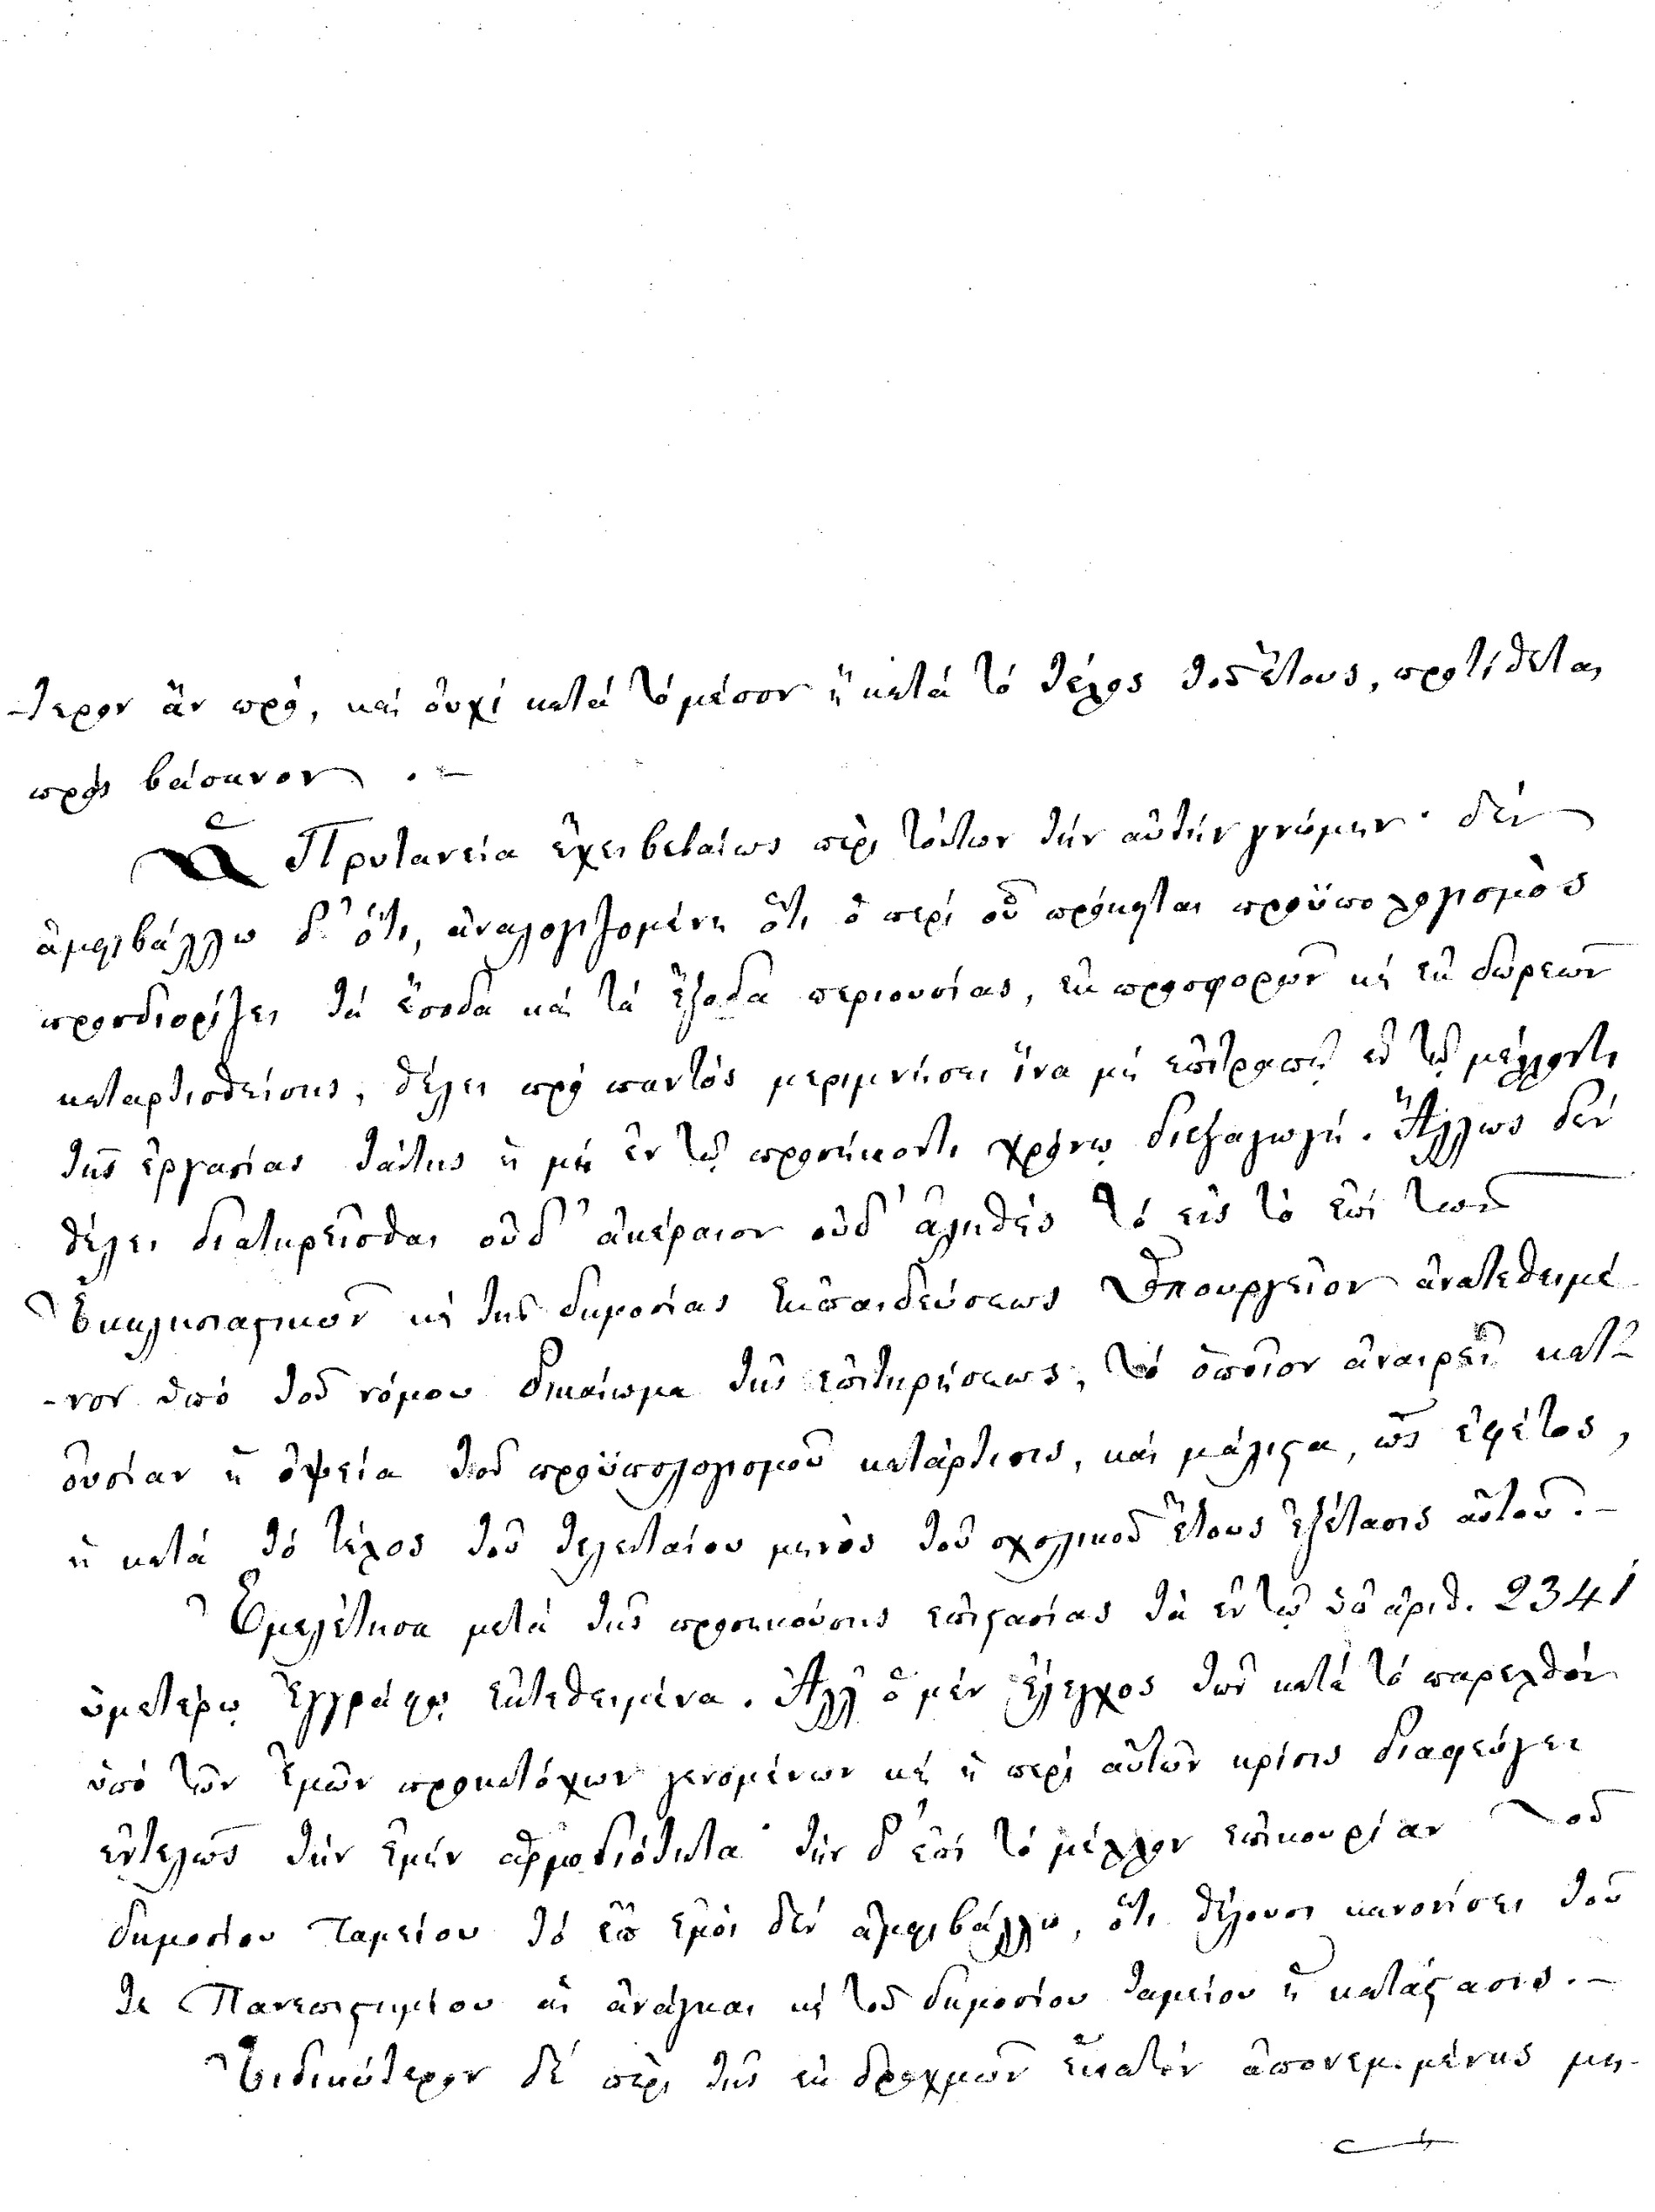 -τερον ἂν πρό, καὶ οὐχὶ κατὰ τὸ μέσον ἢ κατὰ τὸ τέλος τοῦ ἔτους, προτίθεται
πρὸς βάσανον . –
Ἡ Πρυτανεία ἔχει βεβαίως περὶ τούτων τὴν αὐτὴν γνώμην· δὲν
ἀμφιβάλλω δ' ὅτι, ἀναλογιζομένη ὅτι ὁ περὶ οὗ πρόκειται προϋπολογισμὸς
προσδιορίζει τὰ ἔσοδα καὶ τὰ ἔξοδα περιουσίας, ἐκ προσφορῶν κὶ ἐκ δωρεῶν
καταρτισθείσης, θέλει πρὸ παντὸς μεριμνήσει ἵνα μὴ ἐπιτραπῇ ἐν τῷ μέλλοντι
τῆς ἐργασίας ταύτης ἡ μὴ ἐν τῷ προσήκοντι χρόνῳ διεξαγωγή. Ἄλλως δὲν
θέλει διατηρεῖσθαι οὐδ' ἀκέραιον οὐδ' ἀληθὲς τὸ εἰς τὸ ἐπὶ τῶν
Ἐκκλησιαστικῶν κὶ τῆς δημοσίας Ἐκπαιδεύσεως Ὑπουργεῖον ἀνατεθειμέ-
-νον ὑπὸ τοῦ νόμου δικαίωμα τῆς ἐπιτηρήσεως, τὸ ὁποῖον ἀναιρεῖ κατ'
οὐσίαν ἡ ὀψεία τοῦ προϋπολογισμοῦ κατάρτισις, καὶ μάλιστα, ὡς ἐφέτος,
ἡ κατὰ τὸ τέλος τοῦ τελευταίου μηνὸς τοῦ σχολικοῦ ἔτους ἐξέτασις αὐτοῦ. –
Ἐμελέτησα μετὰ τῆς προσηκούσης ἐπιστασίας τὰ ἐν τῷ ὑπ' ἀριθ. 2341
ὑμετέρῳ ἐγγράφῳ ἐκτεθειμένα. Ἀλλ' ὁ μὲν ἔλεγχος τῶν κατὰ τὸ παρελθὸν
ὑπὸ τῶν ἐμῶν προκατόχων γενομένων κὶ ἡ περὶ αὐτῶν κρίσις διαφεύγει
ἐντελῶς τὴν ἐμὴν ἁρμοδιότητα· τὴν δ' ἐπὶ τὸ μέλλον ἐπικουρίαν τοῦ
δημοσίου ταμείου τὸ ἐπ' ἐμοὶ δὲν ἀμφιβάλλω, ὅτι θέλουσι κανονίσει τοῦ
τε Πανεπιστημίου αἱ ἀνάγκαι κὶ τοῦ δημοσίου ταμείου ἡ κατάστασις. –
Εἰδικώτερον δὲ περὶ τῆς ἐκ δραχμῶν ἑκατὸν ἀπονεμημένης μη-